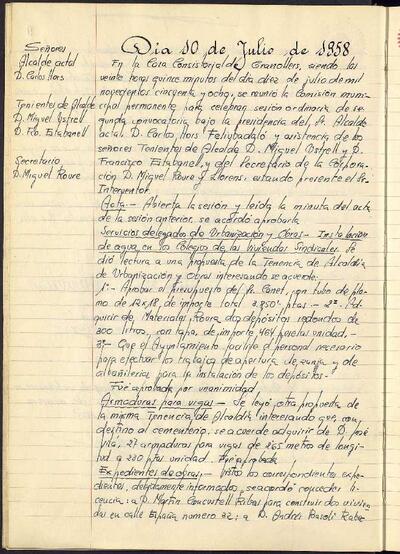 Día 10 de Julio de 1958
Señores
Alcalde actal
D. Carlos Llors
Tenientes de Alcalde
D. Miguel Ostrell
D. Fco. Estabanell
Secretario
D. Miguel Roure
En la Casa Consistorial de Granollers, siendo las
veinte horas quince minutos del día diez de julio de mil
novecientos cincuenta y ocho, se reunió la Comisión muni-
cipal permanente para celebrar sesión ordinaria de se-
gunda convocatoria bajo la presidencia del Sr. Alcalde
actal. D. Carlos Llors y asistencia de los
señores Tenientes de Alcalde D. Miguel Ostrell y D.
Francisco Estabanell, y del Secretario de la Corpora-
ción D. Miguel Roure y Llorens; estando presente el Sr.
Interventor.
Acta.- Abierta la sesión y leída la minuta del acta
de la sesión anterior, se acordó aprobarla
Servicios delegados de Urbanización y Obras.- Instalación
de agua en los Colegios de las Viviendas Sindicales. Se
dió lectura a una propuesta de la Tenencia de Alcaldía
de Urbanización y Obras interesando se acuerde:
1º.- Aprobar el presupuesto del Sr. Canet, con tubo de plo-
mo de 12x18, de importe total 2.850' ptas.- 2º. Ad-
quirir de Materiales Roura dos depósitos redondos de
300 litros, con tapa, de importe 464 pesetas unidad.-
3º.- Que el Ayuntamiento facilite el personal necesario
para efectuar los trabajos de apertura de zanja y de
albañilería para la instalación de los depósitos.-
Fué aprobada por unanimidad.
Armaduras para vigas.- Se leyó otra propuesta de
la misma Tenencia de Alcaldía interesando que, con
destino al cementerio, se acuerde adquirir de D. José
Vila, 27 armaduras para vigas de 2'65 metros de longi-
tud a 220 ptas unidad. Fué aprobada
Expedientes de obras.- Vistos los correspondientes expe-
dientes, debidamente informados, se acordó conceder li-
cencia: a D. Martín para construir dos vivien-
das en calle España número 22; a D. Andrés